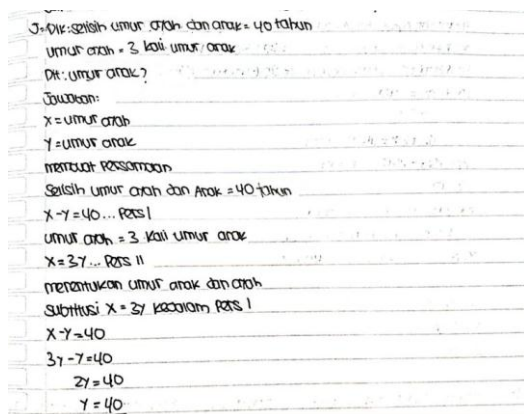 J=Dik:selisih umur ayah dan anak = 40 tahun
umur ayah = 3 kali umur anak
Dit: umur anak?
Jawaban:
X = umur ayah
Y = umur anak
membuat Persamaan
Selisih umur ayah dan Anak = 40 tahun
X - Y = 40 ... Pers I
umur ayah = 3 kali umur anak
X = 3Y ... Pers II
menentukan umur anak dan ayah
Subtitusi X = 3y kedalam Pers I
X - Y = 40
3y - Y = 40
2Y = 40
Y = 40